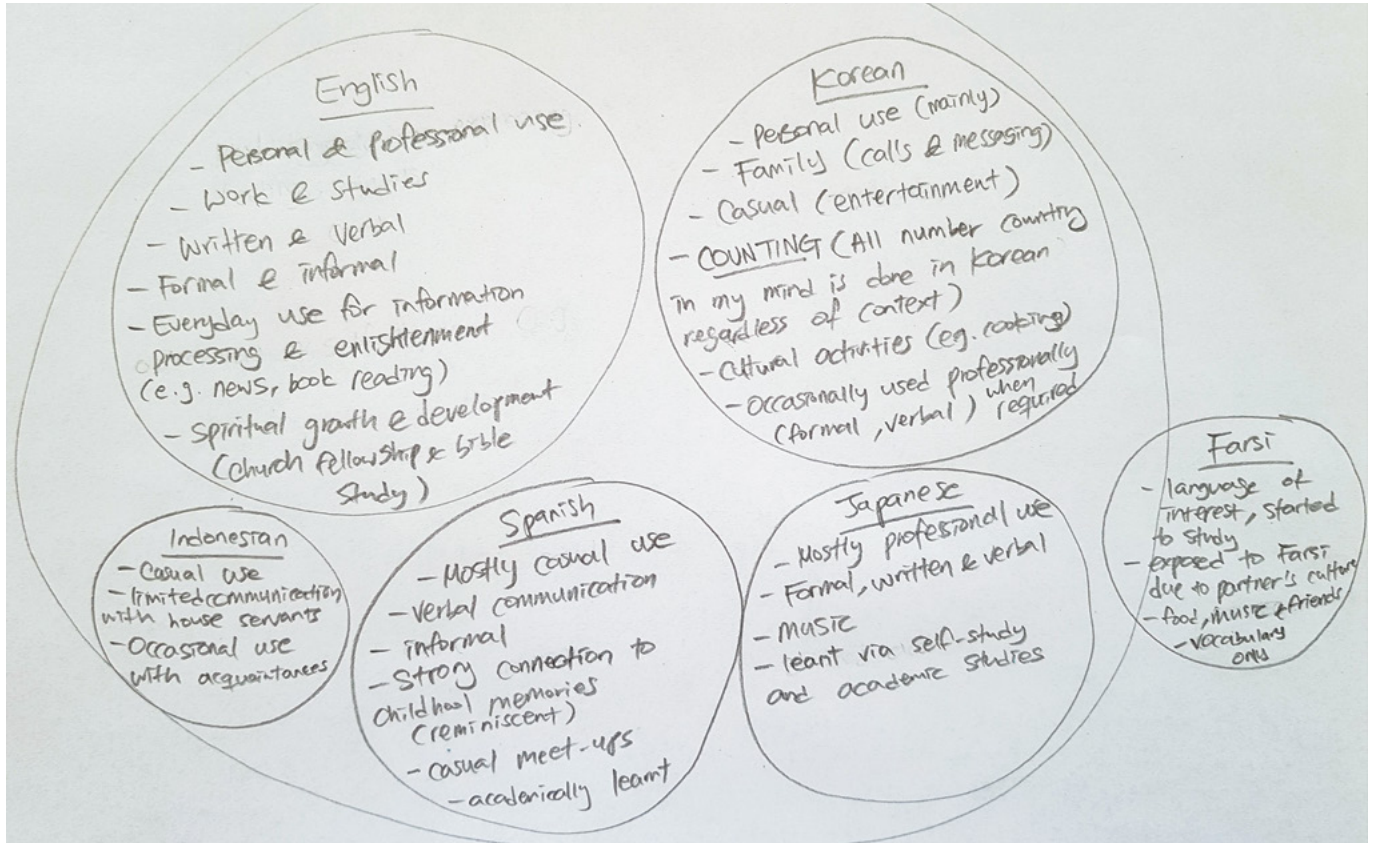 English
- Personal & Professional use
- Work & Studies
- Written & Verbal
- Formal & informal
- Everyday use for information
processing & enlishtenment
(e.g. news, book reading)
- Spiritual growth & development
(church fellowship & bible
study)
Korean
- Personal use (mainly)
- Family (calls & messaging)
- Casual (entertainment)
- COUNTING (All number counting
in my mind is done in Korean
regardless of context)
- Cultural activities (eg. cooking)
- Occasionally used professionally
(formal, verbal) when
required
Indonesian
- Casual use
- limited communication
with house servants
- Occasional use
with acquaintances
Spanish
- Mostly casual use
- verbal communication
- informal
- Strong connection to
childhood memories
(reminiscent)
- casual meet-ups
- academically learnt
Japanese
- Mostly professional use
- Formal, written & verbal
- music
- leant via self-study
and academic studies
Farsi
- language of
interest, started
to study
- exposed to Farsi
due to partner's culture
- food, music & friends
- vocabulary
only